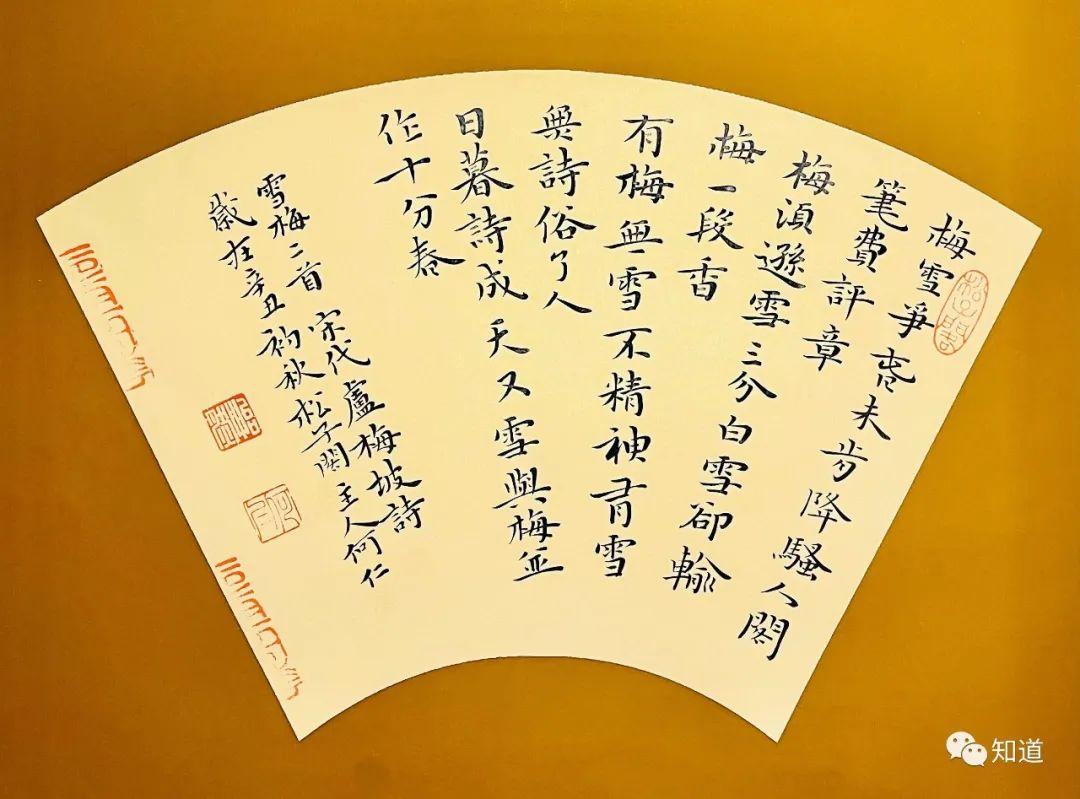 梅雪爭春未肯降騷人閣
筆費評章
梅須遜雪三分白雪卻輸
梅一段香
有梅無雪不精神有雪
無詩俗了人
日暮詩成天又雪與梅並
作十分春
雪梅二首 宋代盧梅坡詩
歲在辛丑初秋松子閣主人何仁
知道